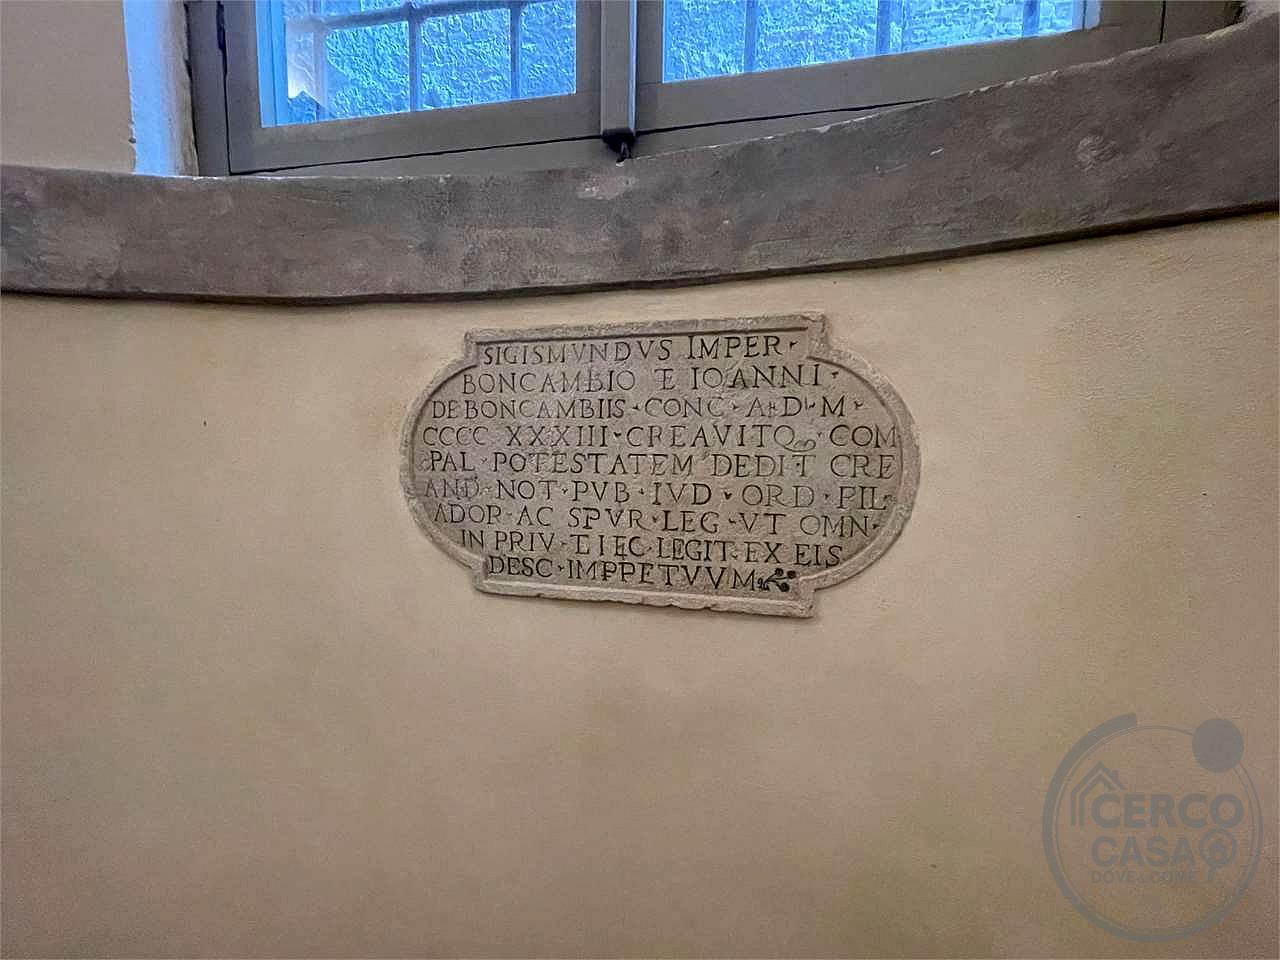 SIGISMVNDVS IMPER·
BONCAMBIO E IOANNI·
DE BONCAMBIIS·CONC·A·D·M·
CCCC XXXIII·CREAVITQ·COM
PAL·POTESTATEM DEDIT CRE
AND·NOT·PVB·IVD·ORD·FIL·
ADOR·AC SPVR·LEG·VT OMN·
IN PRIV·E IEC·LEGIT·EX EIS
DESC·IMPPETVVM
CERCO
CASA
DOVE&COME